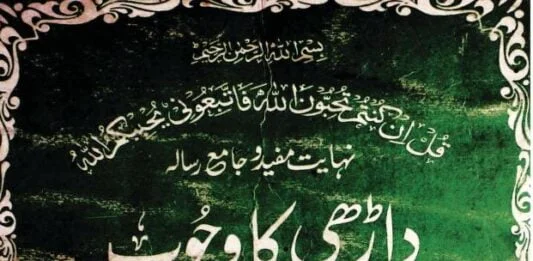 بسم الله الرحمن الرحيم
قل ان كنتم تحبون الله فاتبعونی يحببكم الله
نہایت مفید و جامع رسالہ
داڑھی کا وجوب